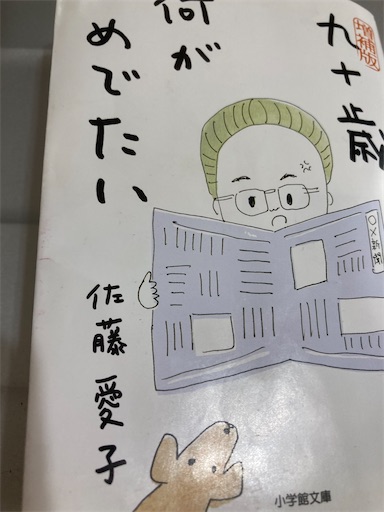 増補版
九十歳
何が
めでたい
佐藤愛子
〇×新聞
小学館文庫